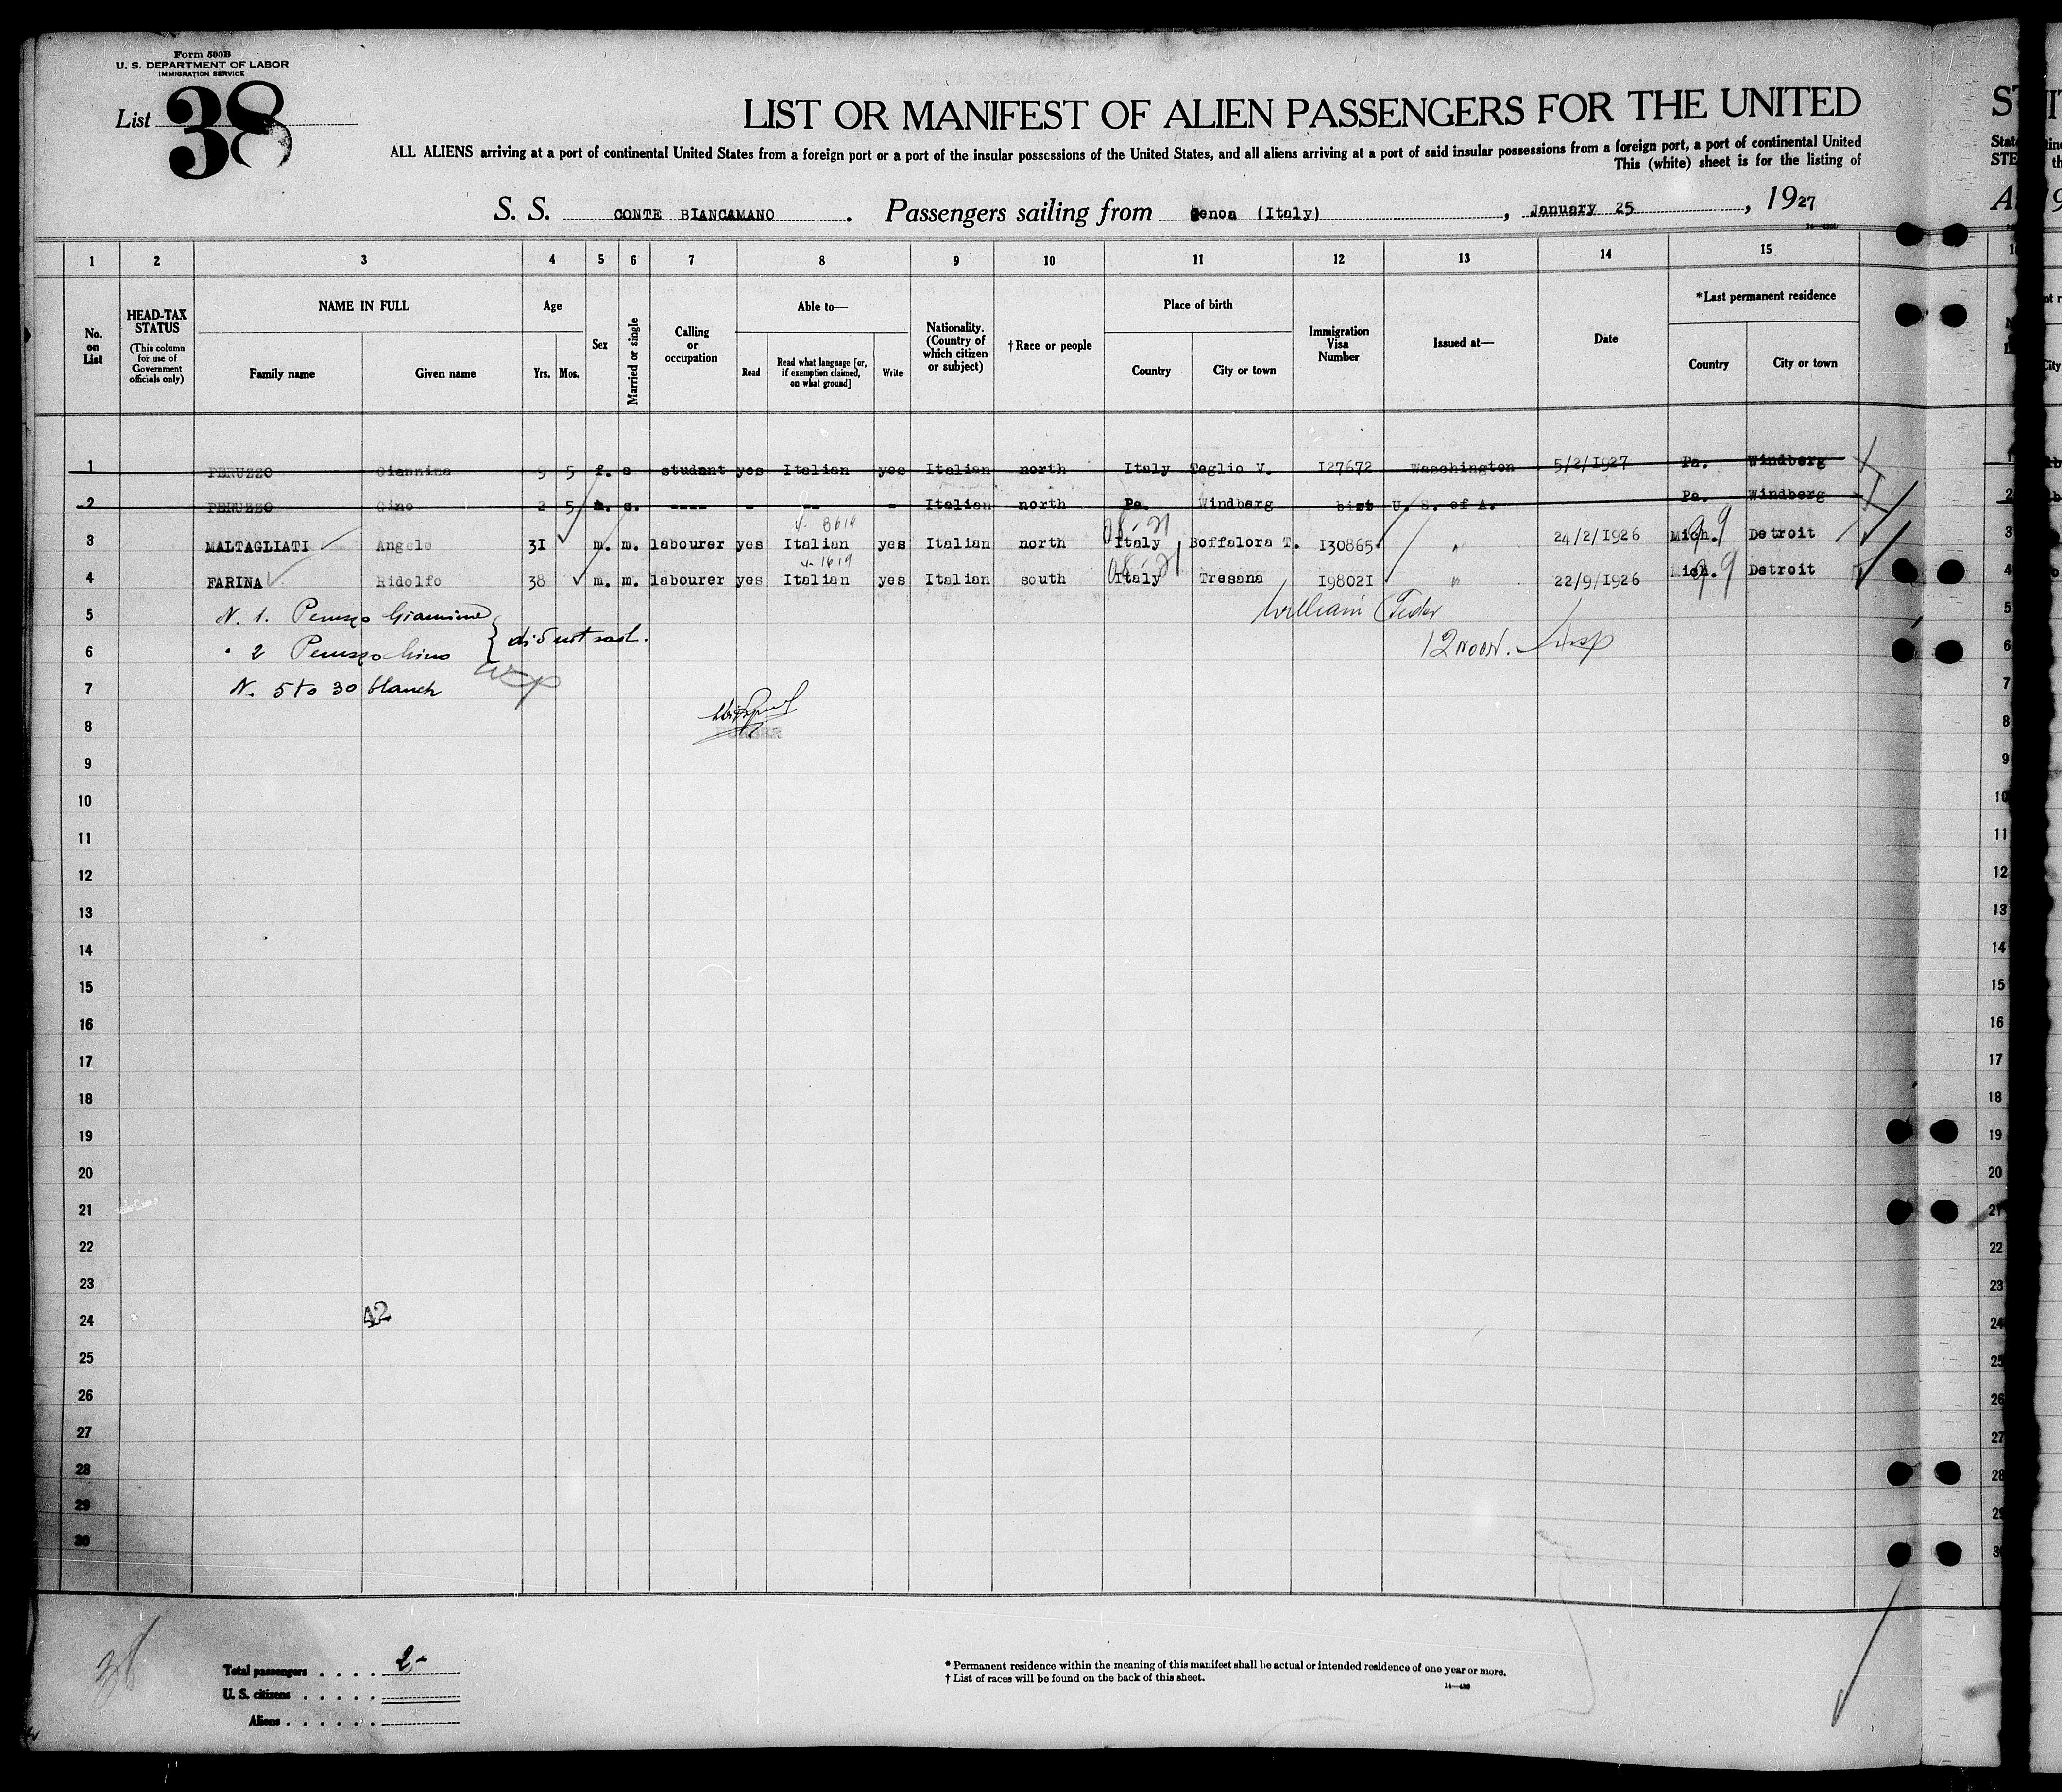 Form 500B
U. S. DEPARTMENT OF LABOR
IMMIGRATION SERVICE
List 38
LIST OR MANIFEST OF ALIEN PASSENGERS FOR THE UNITED
ALL ALIENS arriving at a port of continental United States from a foreign port or a port of the insular possessions of the United States, and all aliens arriving at a port of said insular possessions from a foreign port, a port of continental United
This (white) sheet is for the listing of
S. S. CONTE BIANCAMANO . Passengers sailing from Genoa (Italy) , January 25 , 1927
1 2 3 4 5 6 7 8 9 10 11 12 13 14 15
No. on List
HEAD-TAX STATUS (This column for use of Government officials only)
NAME IN FULL
Family name Given name
Age
Yrs. Mos.
Sex
Married or single
Calling or occupation
Able to—
Read
Read what language [or, if exemption claimed, on what ground]
Write
Nationality. (Country of which citizen or subject)
†Race or people
Place of birth
Country City or town
Immigration Visa Number
Issued at—
Date
*Last permanent residence
Country City or town
1 PERUZZO Giannina 9 5 f. s student yes Italian yes Italian north Italy Teglio V. 127672 Waschington 5/2/1927 Pa. Windberg
2 PERUZZO Gino 2 5 m. s. ---- - -- - Italian north Pa. Windberg U. S. of A. Pa. Windberg
3 MALTAGLIATI Angelo 31 m. m. labourer yes Italian yes Italian north Italy Boffalora T. 130865 " 24/2/1926 Mich. Detroit
4 FARINA Ridolfo 38 m. m. labourer yes Italian yes Italian south Italy Tresana 198021 " 22/9/1926 Mich. Detroit
5 N. 1. Peruzzo Giannina
6 " 2 Peruzzo Gino } did not sail.
12 NOON. Insp
7 N. 5 to 30 blanck
8
9
10
11
12
13
14
15
16
17
18
19
20
21
22
23
24 42
25
26
27
28
29
30
38
Total passengers . . . . 2-
U. S. citizens . . . . .
Aliens . . . . . .
* Permanent residence within the meaning of this manifest shall be actual or intended residence of one year or more.
† List of races will be found on the back of this sheet.
14—430